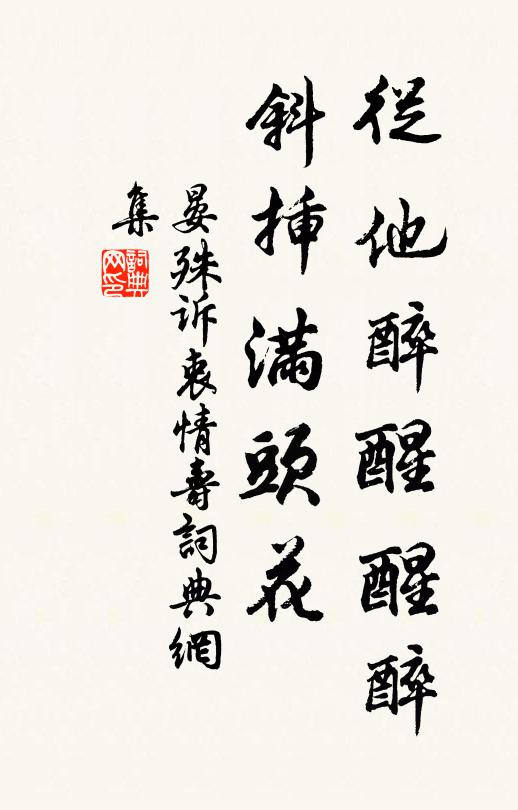 從他醉醒醒醉
斜插滿頭花
晏殊訴衷情壽詞典網
集
詞典
网印